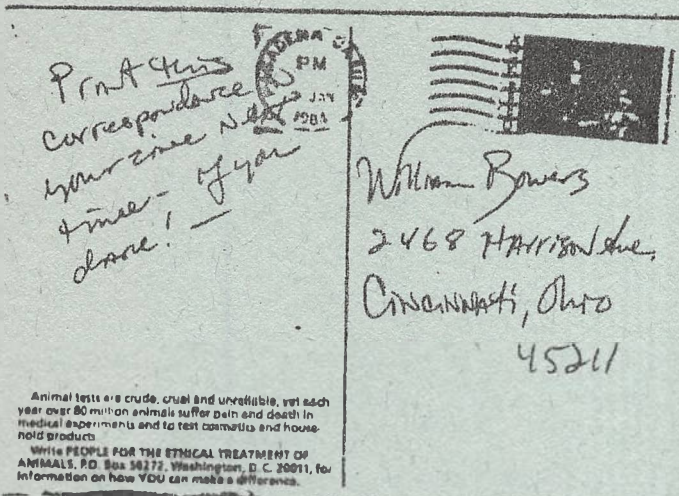 Print this
correspondance
your zine Next
time - if you
dare! —
PASADENA CA
PM
JAN
William Bowers
2468 Harrison Ave.
Cincinnati, Ohio
45211
Animal tests are crude, cruel and unreliable, yet each
year over 80 million animals suffer pain and death in
medical experiments and to test cosmetics and house-
hold products
Write PEOPLE FOR THE ETHICAL TREATMENT OF
ANIMALS, P.O. Box 56272, Washington, D.C. 20011, for
information on how YOU can make a difference.